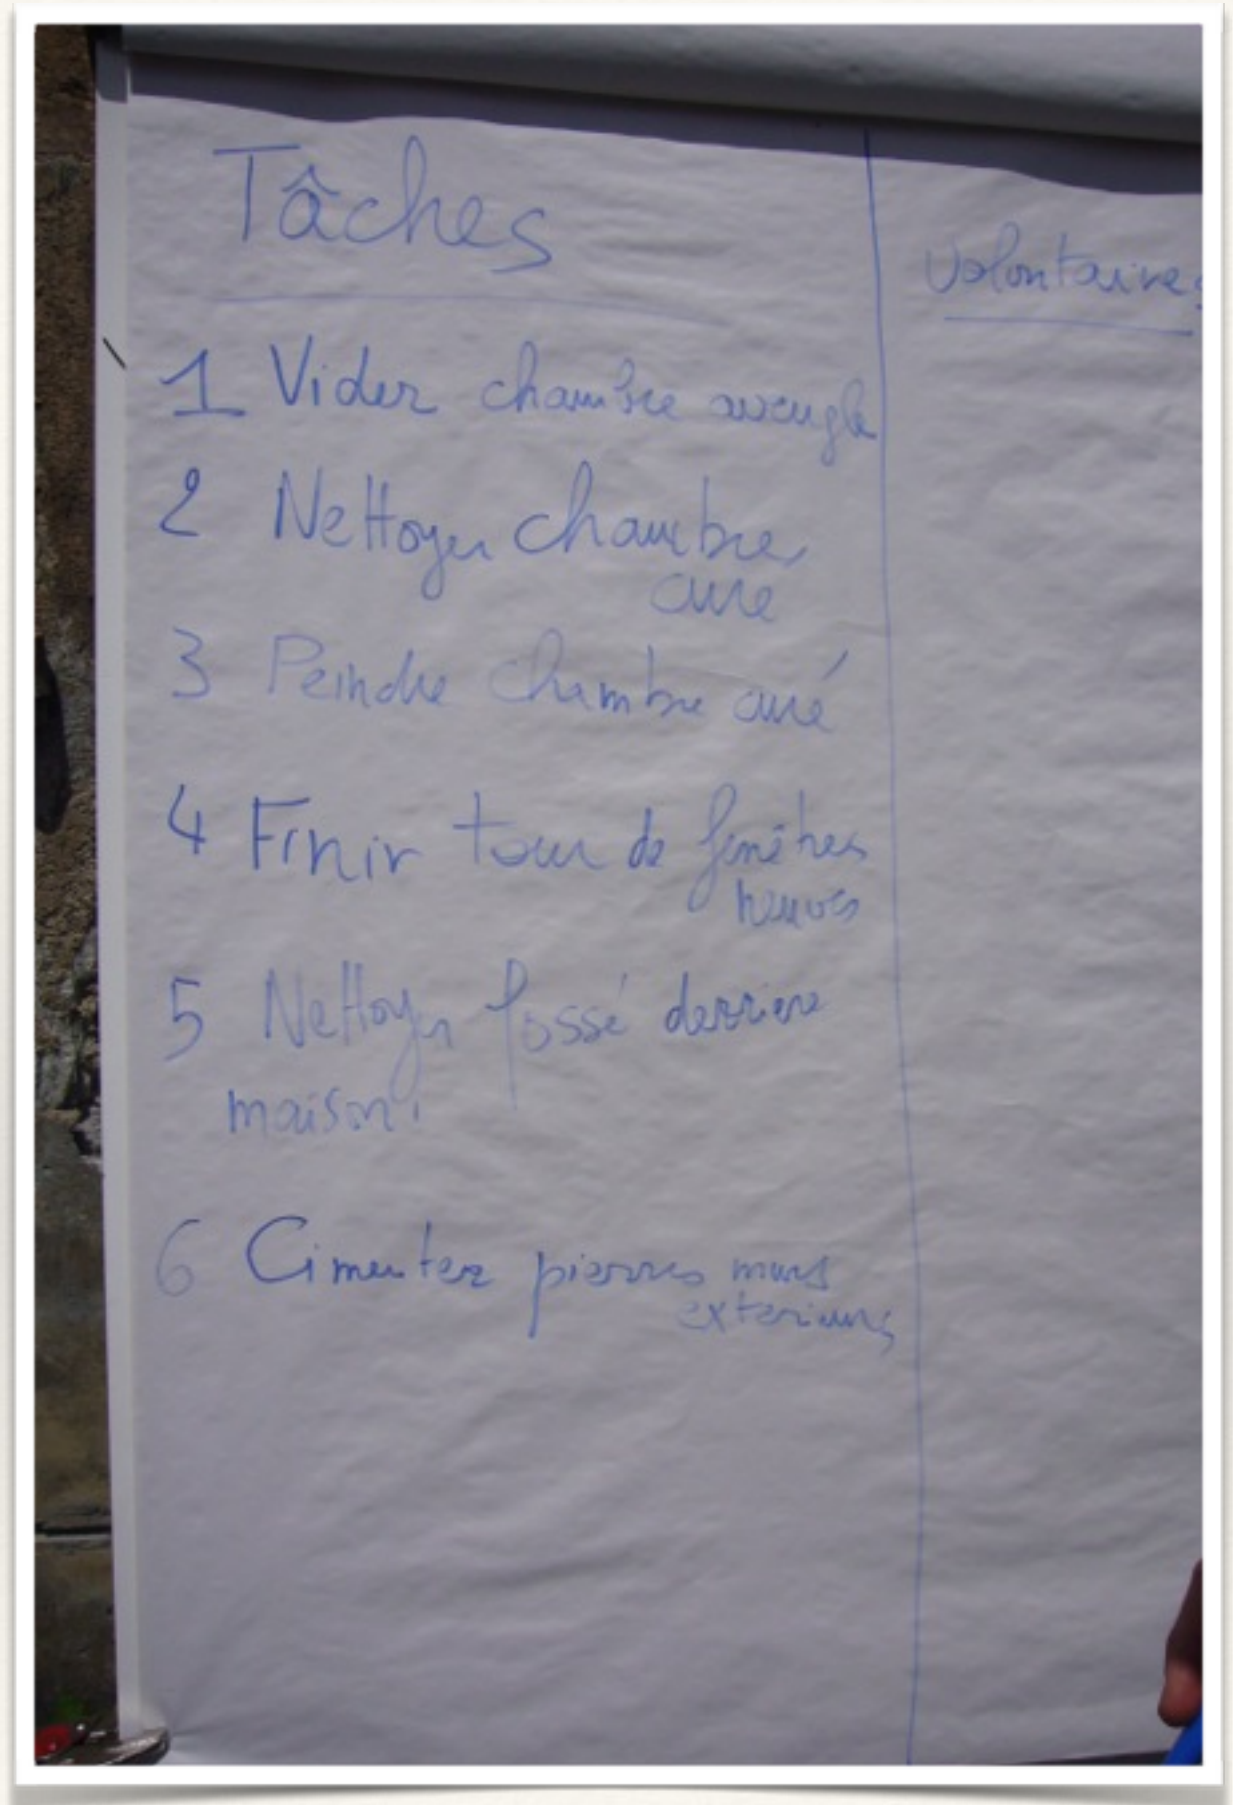 Tâches
Volontaires
1 Vider chambre aveugle
2 Nettoyer chambre
curé
3 Peindre chambre curé
4 Finir tour de fenêtres
neuves
5 Nettoyer fossé derriere
maison.
6 Cimenter pierres murs
exterieurs